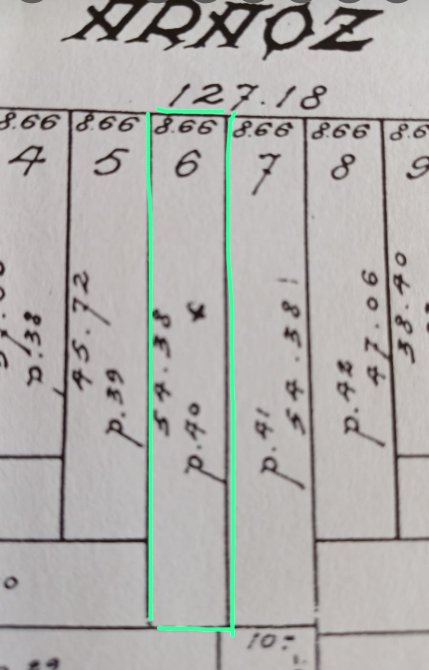 ARAOZ
127.18
8.66 8.66 8.66 8.66 8.66 8.6
4 5 6 7 8 9
p.38
45.72
p.39
54.38
p.40
p.41
54.38
p.42
47.06
38.40
10.-
29